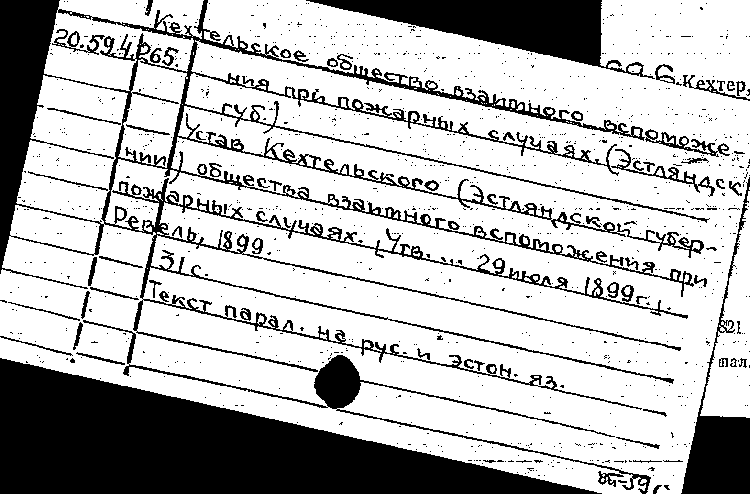 Кехтельское общество взаимного вспоможе-
20.59.4.265.
ния при пожарных случаях. (Эстляндск
губ.).
Устав Кехтельского (Эстляндской губер-
нии) общества взаимного вспоможения при
пожарных случаях. [Утв. ... 29 июля 1899 г.].
Ревель, 1899.
31 с.
Текст парал. на рус. и эстон. яз.
Кехтер,
821.